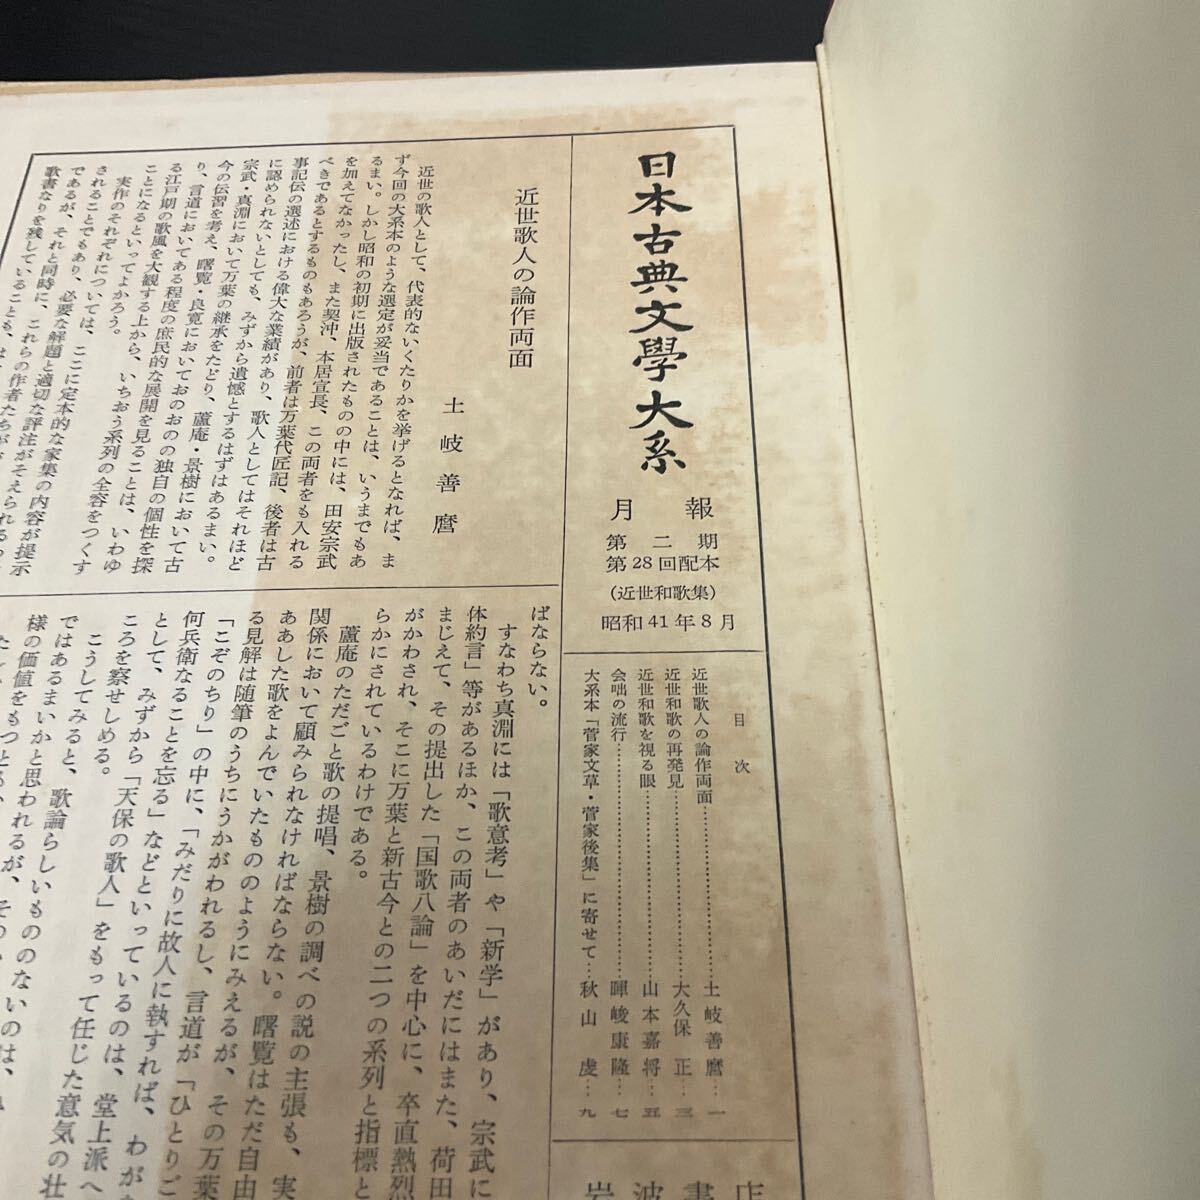 日本古典文學大系
月報
第二期
第28回配本
(近世和歌集)
昭和41年8月
目次
近世歌人の論作両面…土岐善麿…一
近世和歌の再発見…大久保正…三
近世和歌を視る眼…山本嘉将…五
会咄の流行…暉峻康隆…七
大系本「菅家文草・菅家後集」に寄せて…秋山虔…九
岩波書店
近世歌人の論作両面
土岐善麿
近世の歌人として、代表的ないくたりかを挙げるとなれば、ま
ず今回の大系本のような選定が妥当であることは、いうまでもあ
るまい。しかし昭和の初期に出版されたものの中には、田安宗武
を加えてなかったし、また契沖、本居宣長、この両者をも入れる
べきであるとするものもあろうが、前者は万葉代匠記、後者は古
事記伝の選述における偉大な業績があり、歌人としてはそれほど
に認められないとしても、みずから遺憾とするはずはあるまい。
宗武・真淵において万葉の継承をたどり、蘆庵・景樹において古
今の伝習を考え、曙覧・良寛においておのおのの独自の個性を探
り、言道においてある程度の庶民的な展開を見ることは、いわゆ
る江戸期の歌風を大観する上から、いちおう系列の全容をつくす
ことになるといってよかろう。
実作のそれぞれについては、ここに定本的な家集の内容が提示
されることでもあり、必要な解題と適切な評注がそえられる
であるが、それと同時に、これらの作者たちが
歌書なりを残していることも、は
ばならない。
すなわち真淵には「歌意考」や「新学」があり、宗武に
体約言」等があるほか、この両者のあいだにはまた、荷田
まじえて、その提出した「国歌八論」を中心に、卒直熱烈
がかわされ、そこに万葉と新古今との二つの系列と指標と
らかにされているわけである。
蘆庵のただごと歌の提唱、景樹の調べの説の主張も、実
関係において顧みられなければならない。曙覧はただ自由
ああした歌をよんでいたもののようにみえるが、その万葉
る見解は随筆のうちにうかがわれるし、言道が「ひとりご
「こぞのちり」の中に、「みだりに故人に執すれば、わが
何兵衛なることを忘る」などといっているのは、堂上派へ
として、みずから「天保の歌人」をもって任じた意気の壮
ころを察せしめる。
こうしてみると、歌論らしいもののないのは、
ではあるまいかと思われるが、その
様の価値をもつとみ